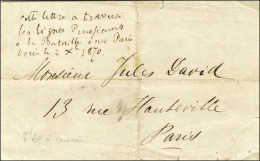 cette lettre a traversé
les lignes Prussiennes
à la Bataille sous Paris
le 2 X 1870.
Monsieur Jules David
13 rue Hauteville
Paris